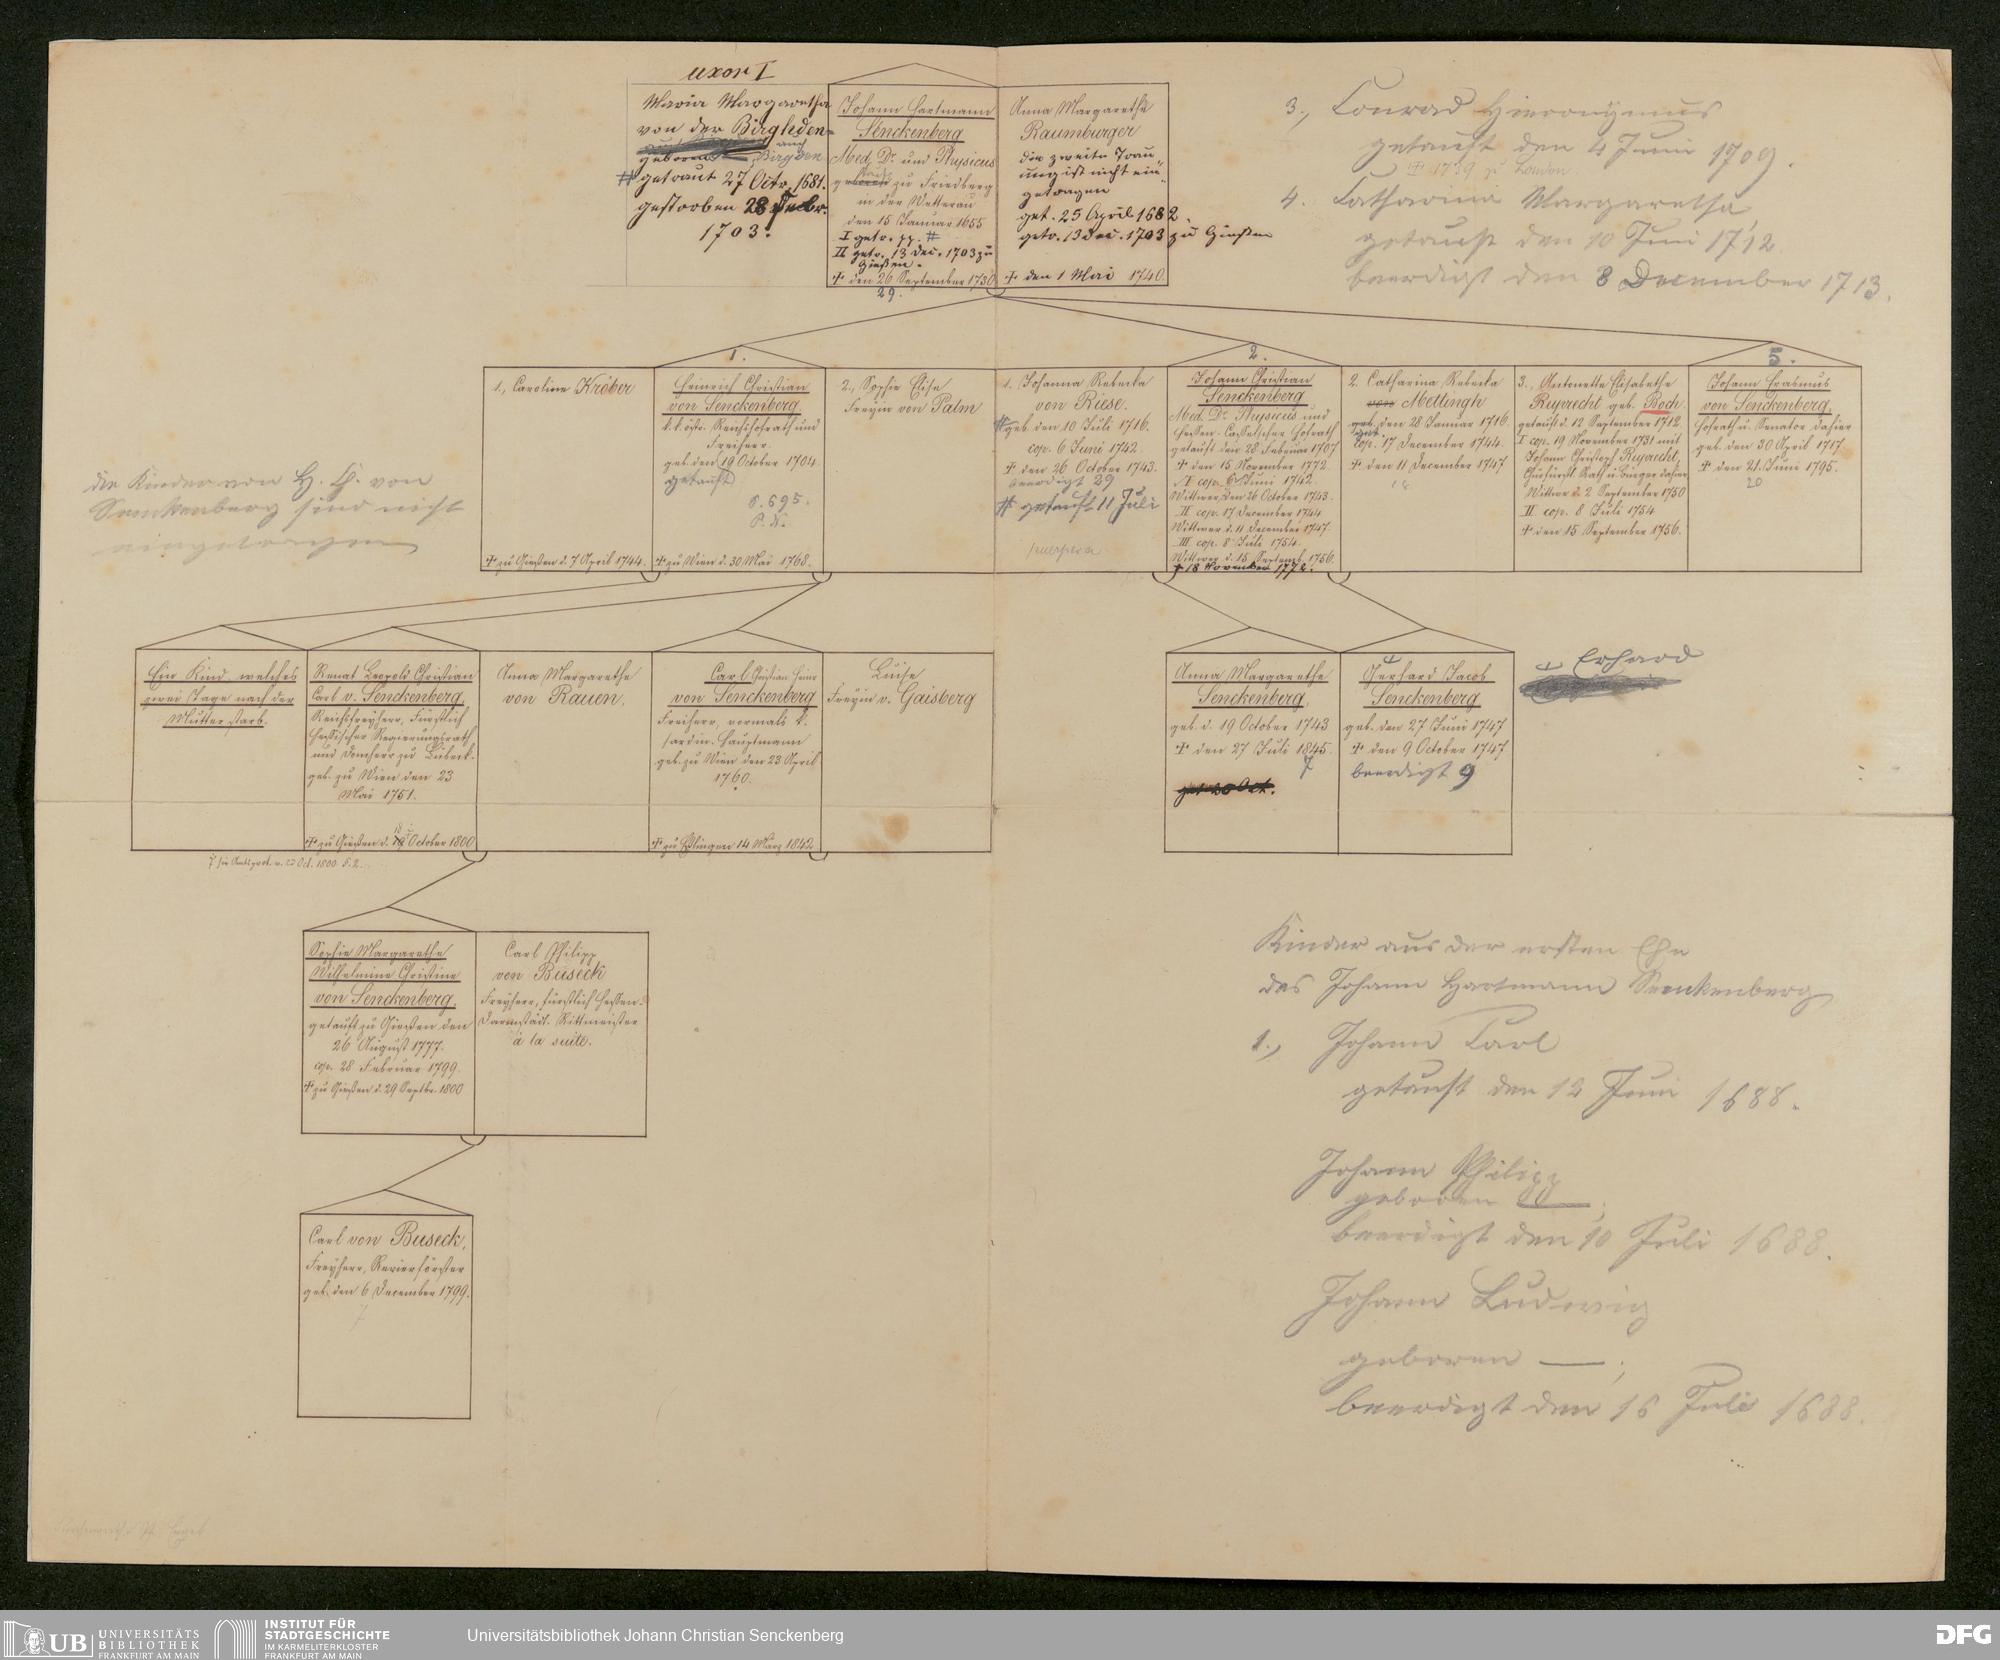 uxor I
Maria Margaretha
von der Birghden=
geboren auch Birgden
# getraut 27 Octr. 1681.
gestorben 28 Decbr.
1703.
Johann Hartmann
Senckenberg
Med. Dr. und Physicus
geboren zu Friedberg
in der Wetterau
den 15 Januar 1655
I getr. pp. #
II getr. 13 Dec. 1703 zu
Gießen.
† den 26 September 1730
29.
Anna Margarethe
Raumburger
die zweite Trau
ung ist nicht ein=
getragen
get. 25 April 1682.
getr. 13 Dec. 1703 zu Gießen
† den 1 Mai 1740.
3., Conrad Hieronymus
getauft den 4 Juni 1709.
† 1739 zu London.
4. Catharina Margaretha
getauft den 10 Juni 1712.
beerdigt den 8 December 1713.
1.
2.
5.
1., Caroline Kröber
† zu Gießen d. 7 April 1744.
Heinrich Christian
von Senckenberg,
k. k. östr. Reichshofrath und
Freiherr.
geb. den 19 October 1704.
getauft
S. 695.
P. N.
† zu Wien d. 30 Mai 1768.
2., Sophie Elise
Freyin von Palm
1. Johanna Rebecka
von Riese.
# geb. den 10 Juli 1716.
cop. 6 Juni 1742.
† den 26 October 1743.
beerdigt 29
# getauft 11 Juli
puerpera
Johann Christian
Senckenberg
Med. Dr. Physicus und
Hessen-Casselscher Hofrath
getauft den 28 Februar 1707
† den 15 November 1772.
I cop. 6 Juni 1742.
Wittwer den 26 October 1743.
II cop. 17 December 1744
Wittwer d. 11 December 1747.
III cop. 8 Juli 1754.
Wittwer d. 15 Septemb. 1756.
† 18 November 1772.
2. Catharina Rebecka
von Mettingh
geb. den 28 Januar 1716.
cop. 17 December 1744.
† den 11 December 1747
3., Antonette Elisabethe
Ruprecht geb. Bach.
getauft d. 12 September 1712.
I cop. 19 November 1731 mit
Johann Christoph Ruprecht,
Churfürstl. Rath u. Bürger dahier
Wittwe d. 2 September 1750
II cop. 8 Juli 1754
† den 15 September 1756.
Johann Erasmus
von Senckenberg,
Hofrath u. Senator dahier
geb. den 30 April 1717.
† den 21. Juni 1795.
20
die Kinder von H. Ch. von
Senckenberg sind nicht
eingetragen
Ein Kind welches
zwei Tage nach der
Mutter starb.
Renat Leopold Christian
Carl v. Senckenberg,
Reichsfreyherr, Fürstlich
Hessischer Regierungsrath
und Domherr zu Lübeck.
geb. zu Wien den 23
Mai 1751.
† zu Gießen d. 18 October 1800
Anna Margarethe
von Rauen.
Carl Christian Heinr
von Senckenberg
Freiherr, vormals k.
sardin. Hauptmann
geb. zu Wien den 23 April
1760.
† zu Eßlingen 14 März 1842
Luise
Freyin v. Gaisberg
Anna Margarethe
Senckenberg,
geb. d. 19 October 1743
† den 27 Juli 1845.
7
get. 20 Oct.
Gerhard Jacob
Senckenberg
geb. den 27 Juni 1747
† den 9 October 1747.
beerdigt 9
Erhard
Sophie Margarethe
Wilhelmine Christine
von Senckenberg,
getauft zu Gießen den
26 August 1777.
cop. 28 Februar 1799.
† zu Gießen d. 29 Septbr. 1800
Carl Philipp
von Buseck
Freyherr, fürstlich Hessen-
Darmstädt. Rittmeister
à la suite.
Carl von Buseck,
Freyherr, Revierförster
geb. den 6 December 1799.
Kinder aus der ersten Ehe
des Johann Hartmann Senckenberg
1., Johann Carl
getauft den 12 Juni 1688.
Johann Philipp
geboren —;
beerdigt den 10 Juli 1688.
Johann Ludwig
geboren —;
beerdigt den 16 Juli 1688.
UB UNIVERSITÄTS
BIBLIOTHEK
FRANKFURT AM MAIN
INSTITUT FÜR
STADTGESCHICHTE
IM KARMELITERKLOSTER
FRANKFURT AM MAIN
Universitätsbibliothek Johann Christian Senckenberg
DFG